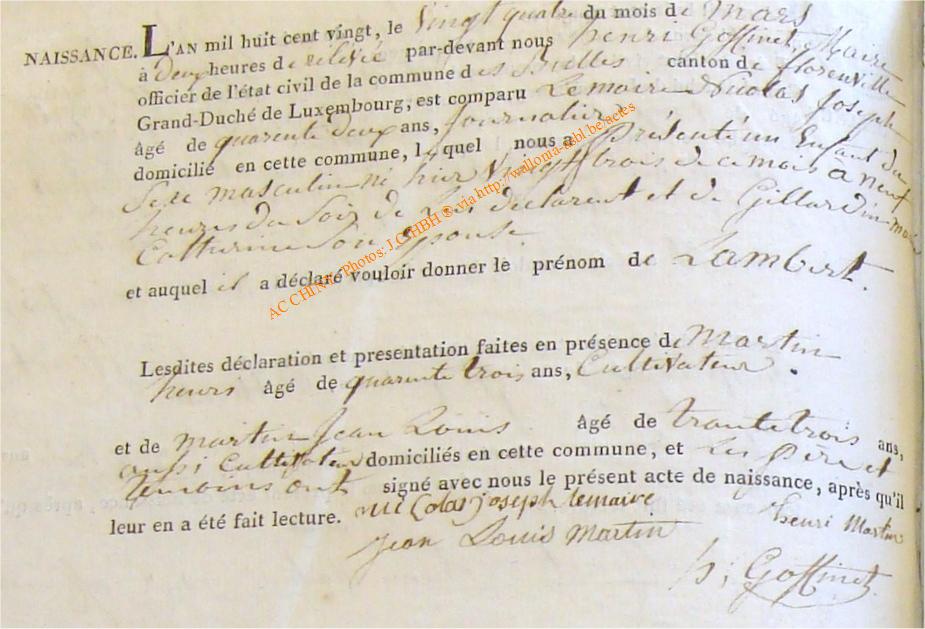 NAISSANCE. L'AN mil huit cent vingt, le vingt quatre du mois de Mars
à Deux heures de relevée par-devant nous henri Goffinet, Maire
officier de l'état civil de la commune des Bulles canton de florenville
Grand-Duché de Luxembourg, est comparu Lemaire Nicolas Joseph
âgé de quarente deux ans, journalier
domicilié en cette commune, lequel nous a présenté un Enfant du
Sexe masculin né hier Vingt trois de ce mois à neuf
heures du Soir de lui déclarent et de Gillardin marie
Catherine Son épouse.
et auquel il a déclaré vouloir donner le prénom de Lambert.
Lesdites déclaration et presentation faites en présence de Martin
henri âgé de quarente trois ans, Cultivateur.
et de martin Jean Louis âgé de trante trois ans,
aussi Cultivateur domiciliés en cette commune, et Les père et
temoins ont signé avec nous le présent acte de naissance, après qu'il
leur en a été fait lecture. nicolas joseph lemaire henri Martin
jean Louis Martin
h; Goffinet.
AC CHINY - Photos: J.C. HBH ® via http://wallonia-asbl.be/actes